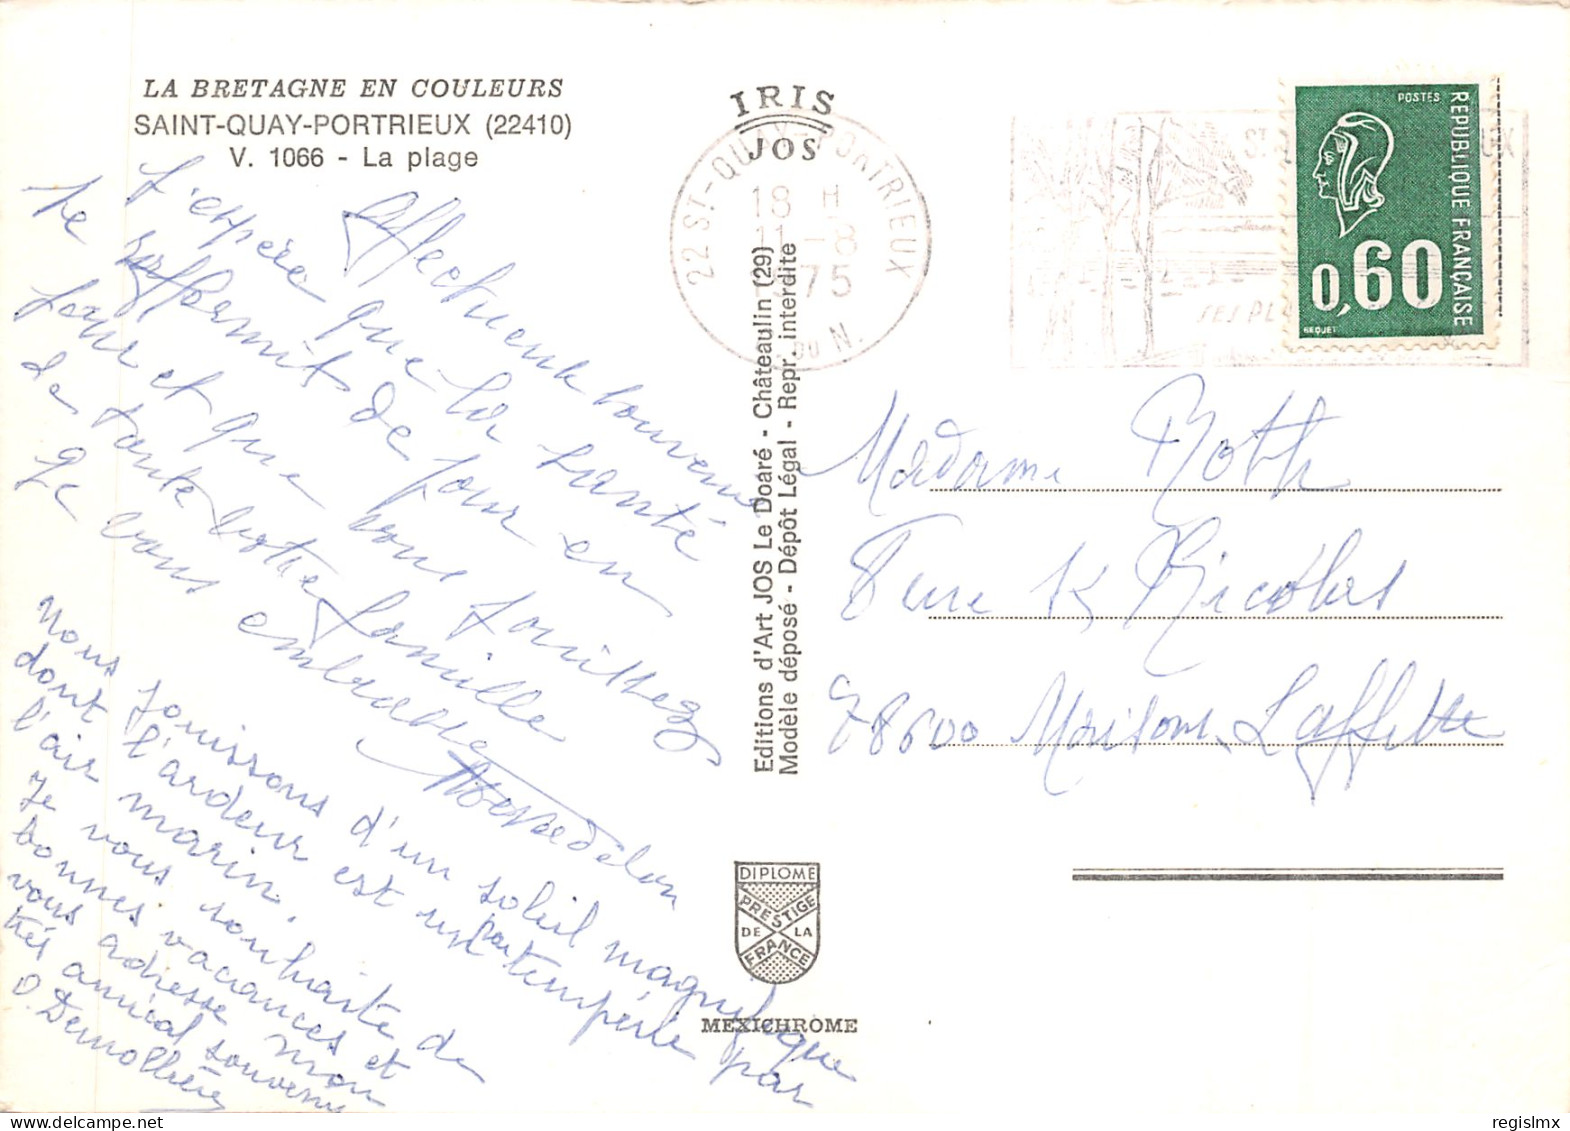 LA BRETAGNE EN COULEURS
SAINT-QUAY-PORTRIEUX (22410)
V. 1066 - La plage
IRIS
JOS
22 ST-QUAY-PORTRIEUX
18 H
11-8
75
DU N.
ST.
UX
SES PL
POSTES
REPUBLIQUE FRANÇAISE
0,60
BEQUET
Affectueux souvenir
J'espère que la santé
se raffermit de jour en
jour et que vous jouissez
de toute votre famille
Je vous embrasse
Nous jouissons d'un soleil magnifique
dont l'ardeur est tempérée par
l'air marin.
Je vous souhaite de
bonnes vacances et
vous adresse mon
très amical souvenir
Editions d'Art JOS Le Doaré - Châteaulin (29)
Modèle déposé - Dépôt Légal - Repr. interdite
Madame Roth
8 rue St Nicolas
78600 Maisons-Laffitte
DIPLOME
PRESTIGE
DE LA
FRANCE
MEXICHROME
regislmx